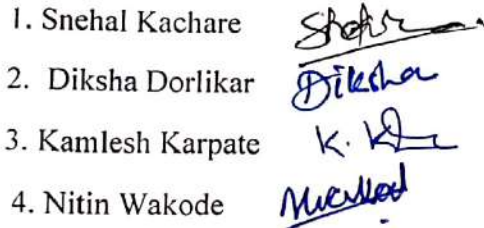 1. Snehal Kachare
2. Diksha Dorlikar Diksha
3. Kamlesh Karpate K.
4. Nitin Wakode